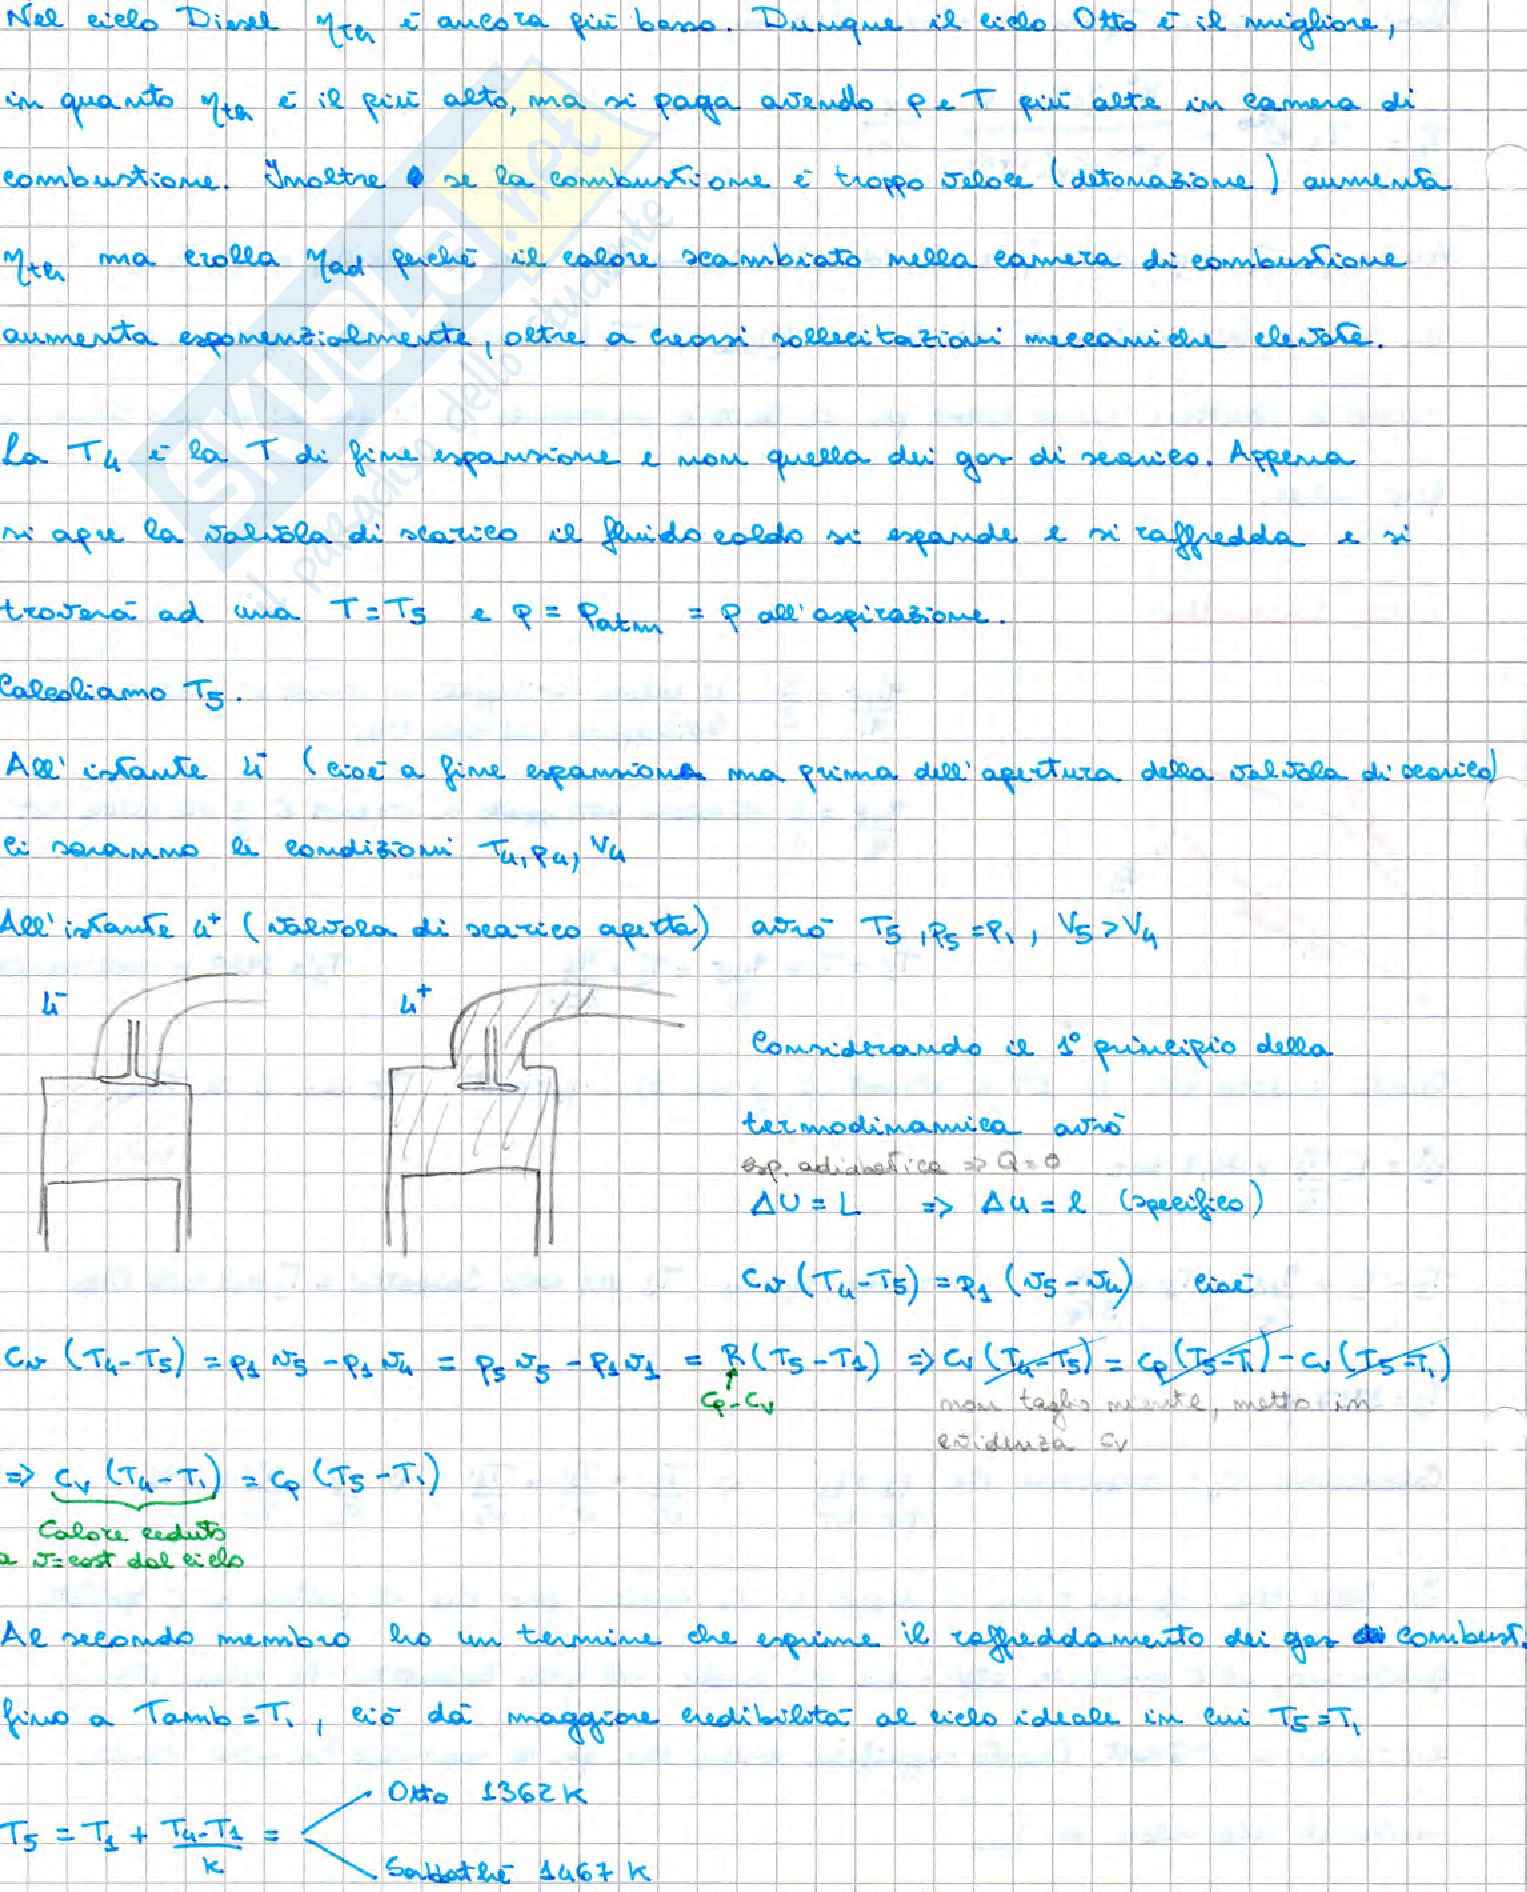 Nel ciclo Diesel ηth è ancora più basso. Dunque il ciclo Otto è il migliore,
in quanto ηth è il più alto, ma si paga avendo p e T più alte in camera di
combustione. Inoltre se la combustione è troppo veloce (detonazione) aumenta
ηth ma crolla ηad perché il calore scambiato nella camera di combustione
aumenta esponenzialmente, oltre a crearsi sollecitazioni meccaniche elevate.
La T4 è la T di fine espansione e non quella dei gas di scarico. Appena
si apre la valvola di scarico il fluido caldo si espande e si raffredda e si
troverà ad una T = T5 e p = patm = p all'aspirazione.
Calcoliamo T5.
All'istante 4⁻ (cioè a fine espansione ma prima dell'apertura della valvola di scarico)
ci saranno le condizioni T4, p4, V4
All'istante 4⁺ (valvola di scarico aperta) avrò T5, p5 = p1, V5 > V4
4⁻ 4⁺
Considerando il 1° principio della
termodinamica avrò
esp. adiabatica => Q = 0
ΔU = L => Δu = l (specifico)
cv (T4 - T5) = p1 (v5 - v4) cioè
cv (T4 - T5) = p1 v5 - p1 v4 = p5 v5 - p1 v1 = R (T5 - T1) => cv (T4 - T5) = cp (T5 - T1) - cv (T5 - T1)
cp - cv
non taglio niente, metto in
evidenza cv
=> cv (T4 - T1) = cp (T5 - T1)
Calore ceduto
a v = cost dal ciclo
Al secondo membro ho un termine che esprime il raffreddamento dei gas combust.
fino a Tamb = T1, ciò dà maggiore credibilità al ciclo ideale in cui T5 = T1
Otto 1362 K
T5 = T1 + (T4 - T1)/k =
Sabbathè 1467 K
SKUOLA.net
il paradiso dello studente